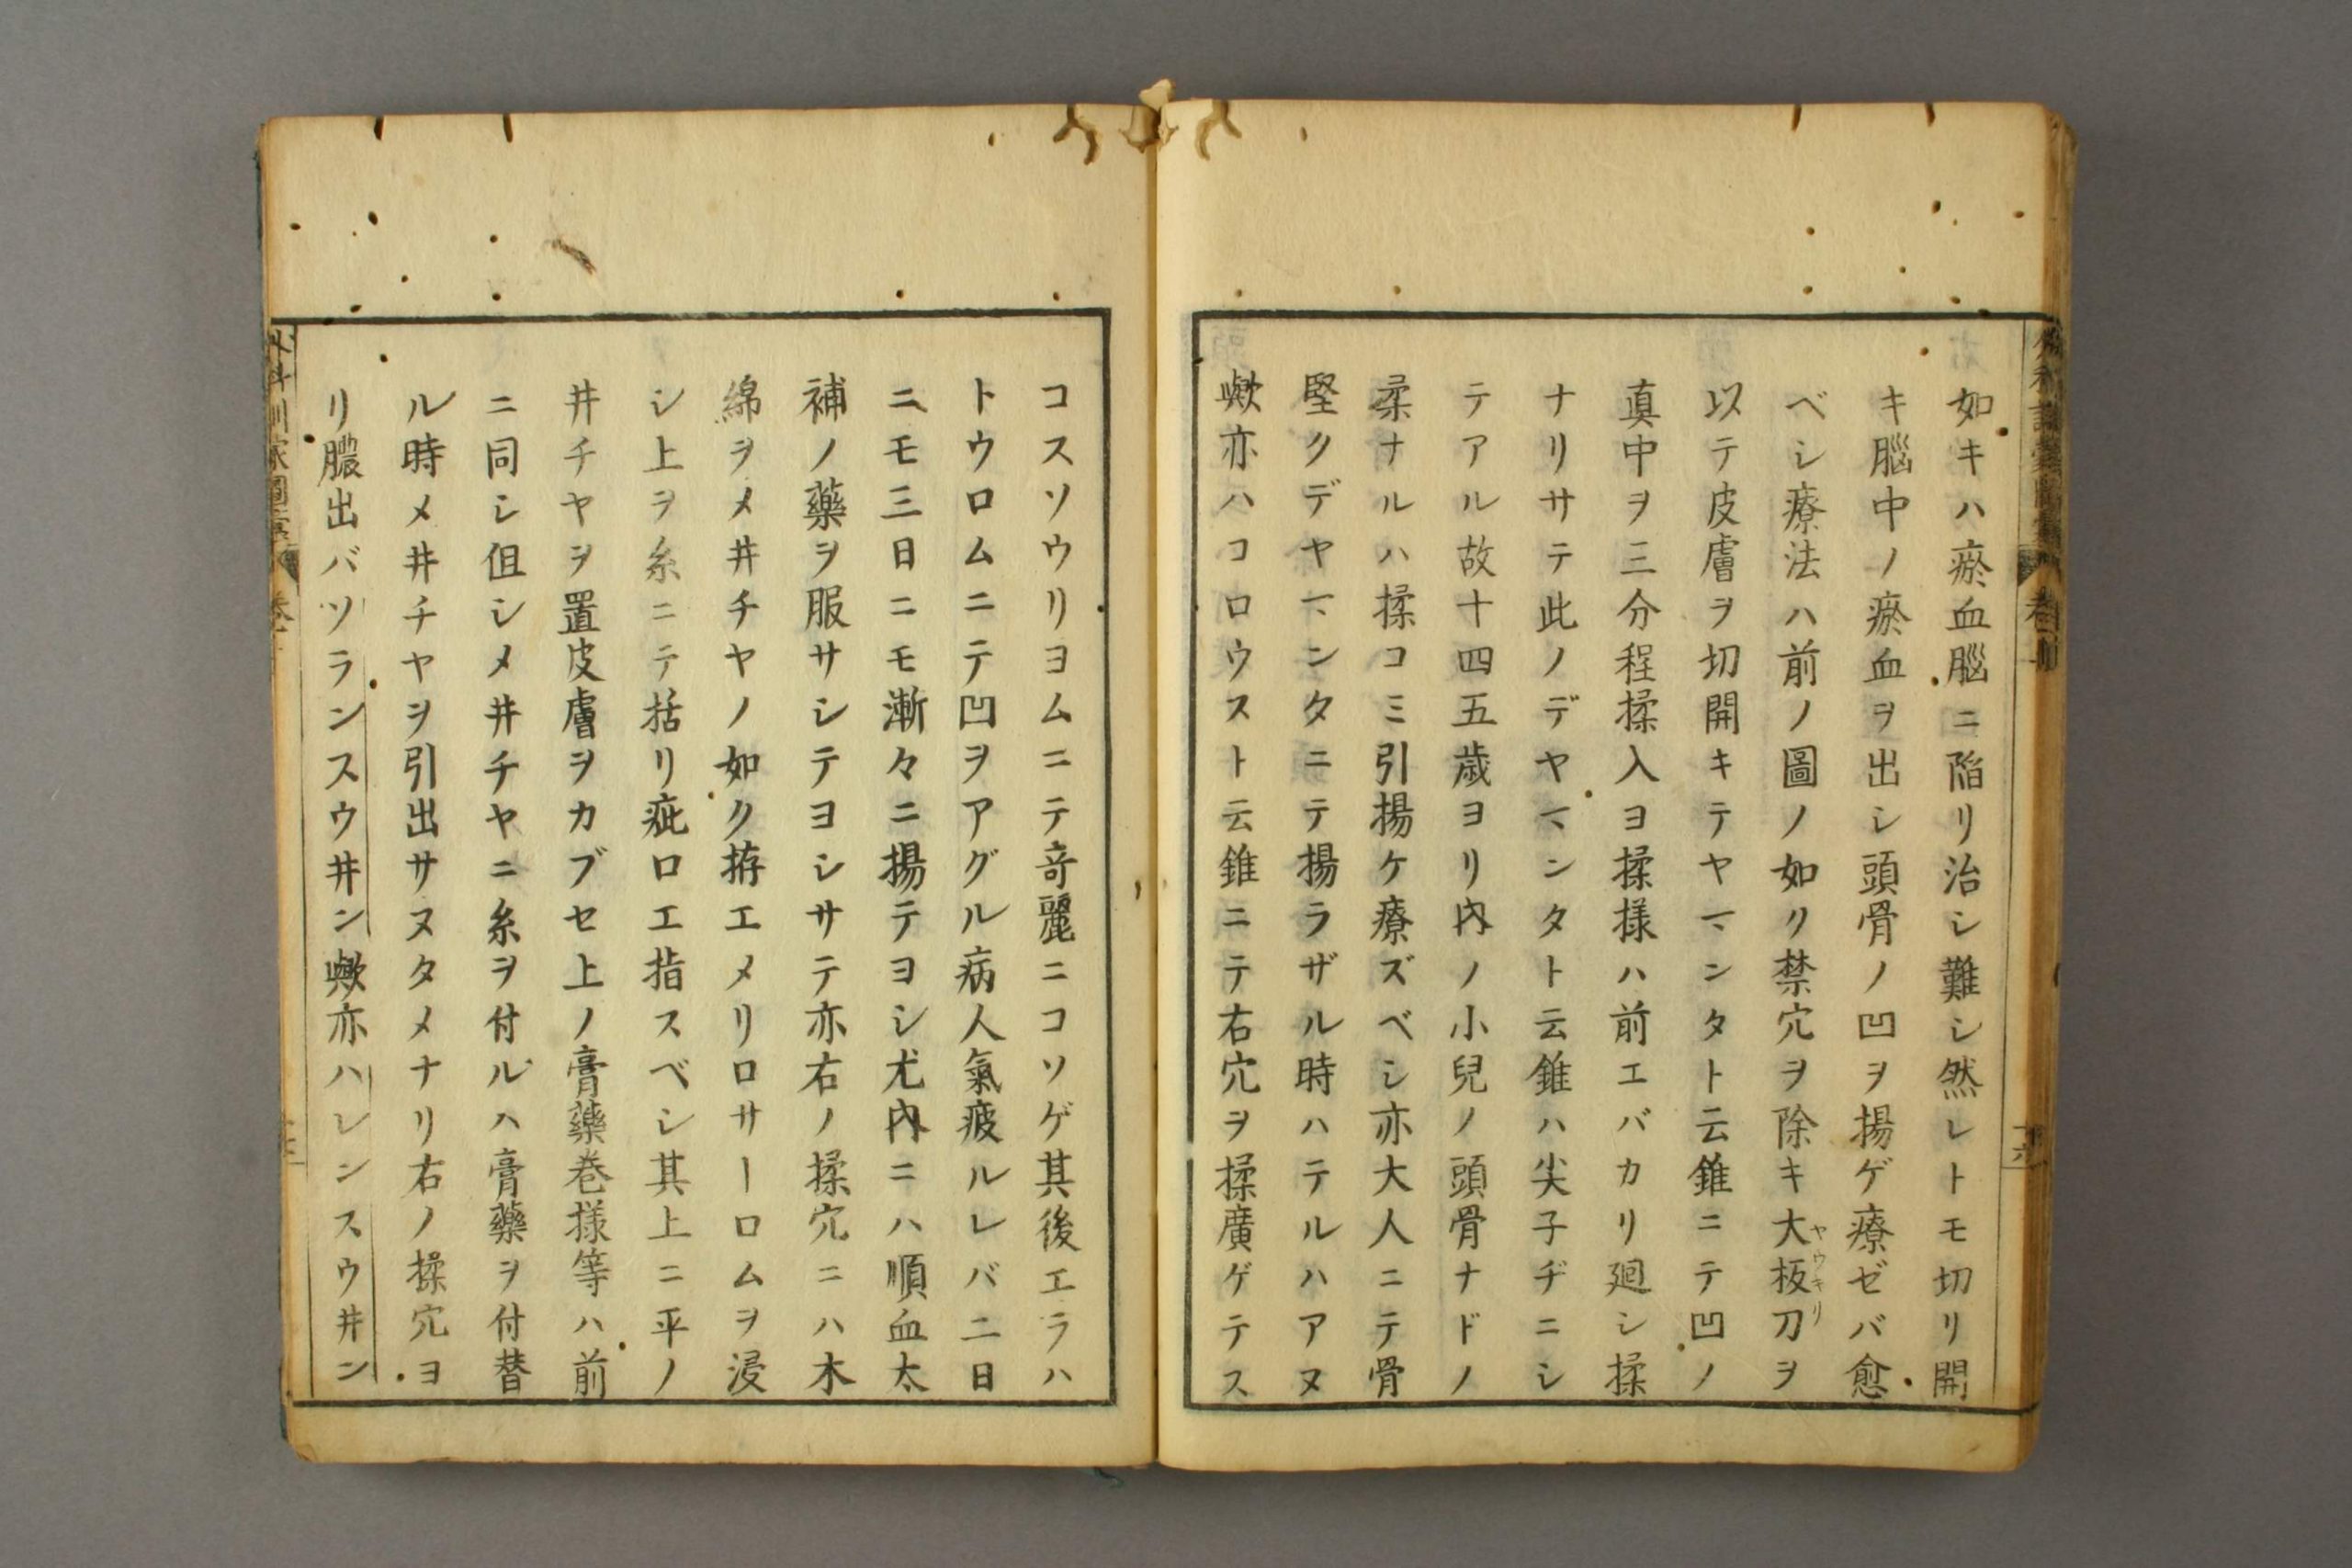 如キハ瘀血腦ニ陥リ治シ難シ然レトモ切リ開
キ腦中ノ瘀血ヲ出シ頭骨ノ凹ヲ揚ゲ療ゼバ愈
ベシ療法ハ前ノ圖ノ如ク禁穴ヲ除キ大板刀ヲ
ヤウキリ
以テ皮膚ヲ切開キテヤマンタト云錐ニテ凹ノ
真中ヲ三分程揉入ヨ揉様ハ前エバカリ廻シ揉
ナリサテ此ノデヤマンタト云錐ハ尖子ヂニシ
テアル故十四五歳ヨリ内ノ小兒ノ頭骨ナドノ
柔ナルハ揉コミ引揚ケ療ズベシ亦大人ニテ骨
堅クデヤマンタニテ揚ラザル時ハテルハアヌ
歟亦ハコロウスト云錐ニテ右穴ヲ揉廣ゲテス
コスソウリヨムニテ竒麗ニコソゲ其後エラハ
トウロムニテ凹ヲアグル病人氣疲ルレバ二日
ニモ三日ニモ漸々ニ揚テヨシ尤内ニハ順血太
補ノ藥ヲ服サシテヨシサテ亦右ノ揉穴ニハ木
綿ヲメ井チヤノ如ク拵エメリロサーロムヲ浸
シ上ヲ糸ニテ括リ疵口エ指スベシ其上ニ平ノ
井チヤヲ置皮膚ヲカブセ上ノ膏藥巻様等ハ前
ニ同シ伹シメ井チヤニ糸ヲ付ルハ膏藥ヲ付替
ル時メ井チヤヲ引出サヌタメナリ右ノ揉穴ヨ
リ膿出バソランスウ井ン歟亦ハレンスウ井ン